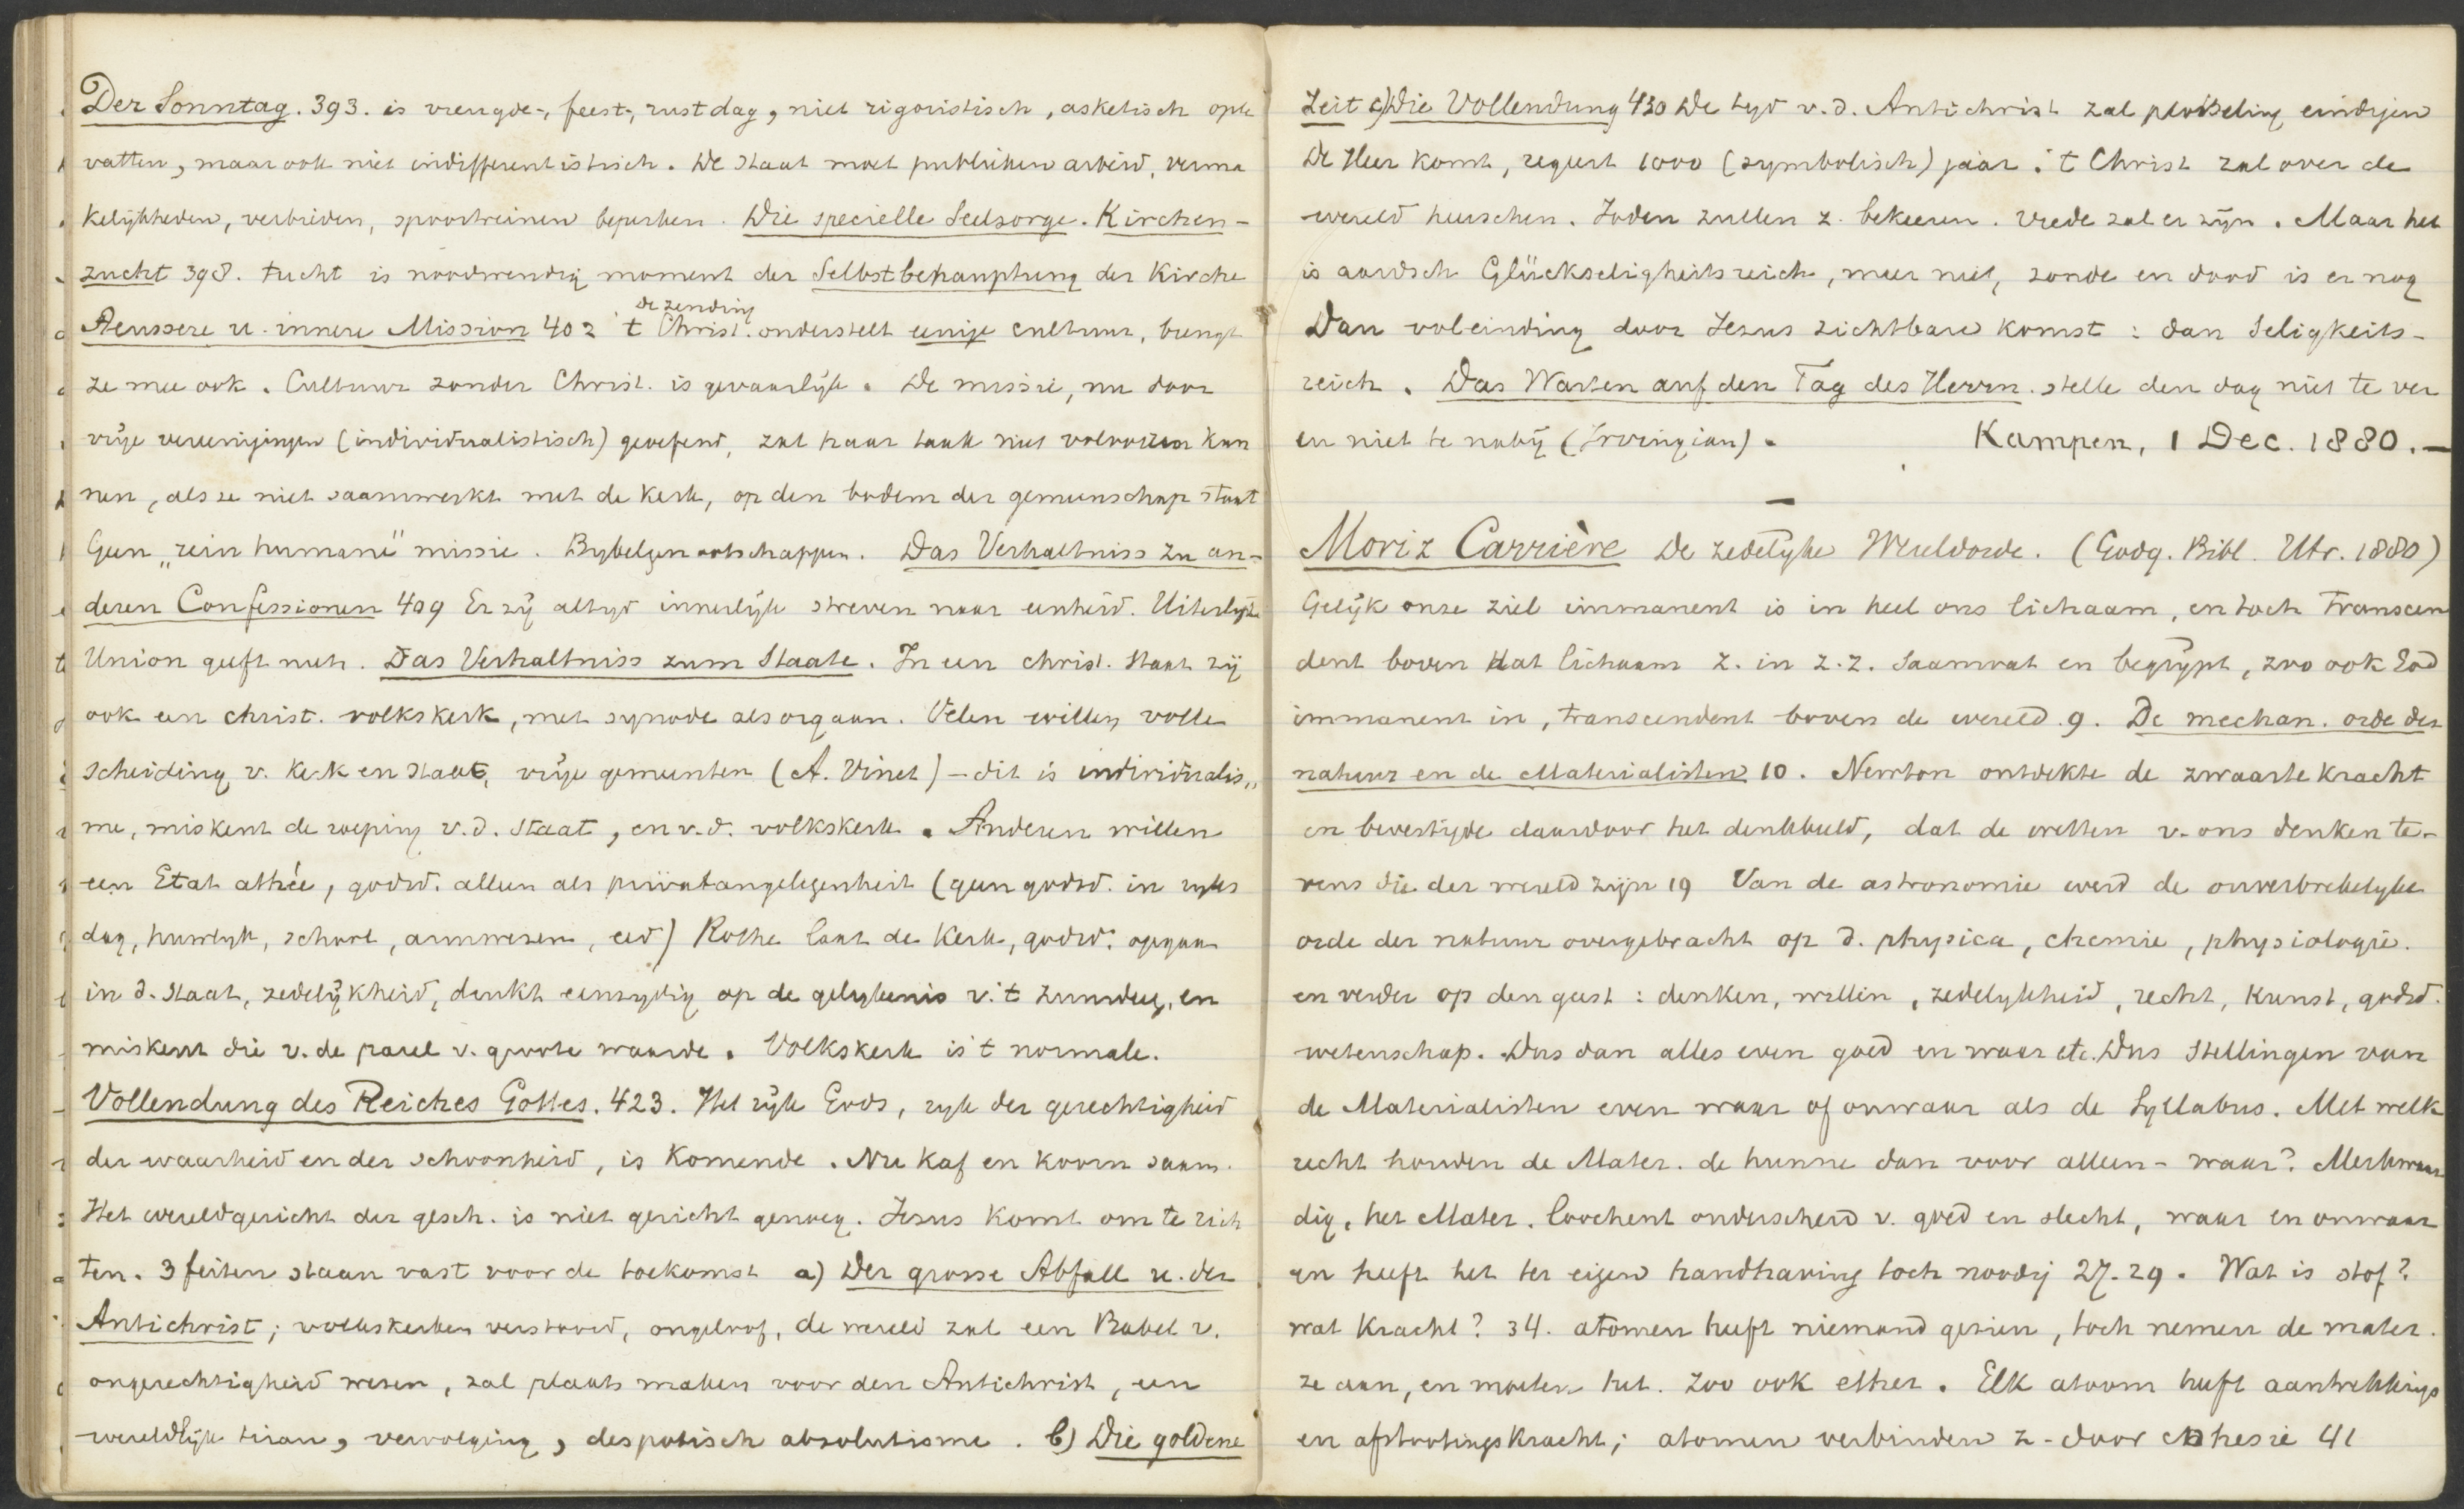 Der Sonntag. 393. is vreugde-, feest-, rustdag, niet rigoristisch, asketisch opte
vatten, maar ook niet indifferentistisch. De staat moet publieken arbeid, verma
kelijkheden, verbieden, spoortreinen beperken. Die specielle Seelsorge. Kirchen-
zucht 398. tucht is noodwendig moment der Selbstbehauptung der Kirche
de zending
Aeussere u. innere Mission 402 't Christ. onderstelt eenige cultuur, brengt
ze mee ook. Cultuur zonder Christ. is gevaarlijk. De missie, nu door
vrije vereenigingen (individualistisch) geoefend, zal haar taak niet volvoeren kun
nen, als ze niet saamwerkt met de kerk, op den bodem der gemeenschap staat
Geen „rein humane" missie. Bybelgenootschappen. Das Verhaltniss zu an-
deren Confessionen 409 Er zij altyd innerlijk streven naar eenheid. Uiterlijke
Union geeft niets. Das Verhaltniss zum Staate. In een christ. staat zij
ook een christ. volkskerk, met synode als orgaan. Velen willen volle
scheiding v. kerk en staat, vrije gemeenten (A. Vinet) – dit is individualis„
me, miskent de roeping v.d. staat, en v.d. volkskerk. Anderen willen
een Etat athée, godsd. alleen als privatangelegenheit (geen godsd. in ryks
dag, huwlyk, school, armwezen, eed) Rothe laat de Kerk, godsd. opgaan
in d. staat, zedelijkheid, denkt eenzydig op de gelykenis v. 't zuurdeeg, en
miskent die v. de parel v. groote waarde. Volkskerk is 't normale.
Vollendung des Reiches Gottes. 423. Het rijk Gods, ryk der gerechtigheid
der waarheid en der schoonheid, is komende. Nu kaf en koorn saam.
Het wereldgericht der gesch. is niet gericht genoeg. Jesus komt om te rich
ten. 3 feiten staan vast voor de toekomst a) Der grosse Abfall u. der
Antichrist; volkskerken verstoord, ongeloof, de wereld zal een Babel v.
ongerechtigheid wezen, zal plaats maken voor den Antichrist, een
wereldlijk tiran, vervolging, despotisch absolutisme. b) Die goldene
Zeit c) Die Vollendung 430 De tyd v.d. Antichrist zal plotseling eindigen
De Heer komt, regeert 1000 (symbolisch) jaar. 't Christ zal over de
wereld heerschen. Joden zullen z. bekeeren. vrede zal er zijn. Maar het
is aardsch Glückseligheitsreich, meer niet, zonde en dood is er nog
Dan voleinding door Jezus zichtbare komst: dan Seligkeits-
reich. Das Warten auf den Tag des Herrn. stelle den dag niet te ver
en niet te naby (Irvingian). Kampen, 1 Dec. 1880.–
Moriz Carrière De zedelyke Wereldorde. (Godg. Bibl. Utr. 1880)
Gelijk onze ziel immanent is in heel ons lichaam, en toch transcen
dent boven dat lichaam z. in z.z. saamvat en begrijpt, zoo ook God
immanent in, transcendent boven de wereld. 9. De mechan. orde der
natuur en de Materialisten 10. Newton ontdekte de zwaartekracht
en bevestigde daardoor het denkbeeld, dat de wetten v. ons denken te-
vens die der wereld zijn 19 Van de astronomie werd de onverbrekelyke
orde der natuur overgebracht op d. physica, chemie, physiologie.
en verder op den geest: denken, willen, zedelykheid, recht, kunst, godsd.
wetenschap. Dus dan alles even goed en waar etc. Dus stellingen van
de Materialisten even waar of onwaar als de Syllabus. Met welk
recht houden de Mater. de hunne dan voor alleen-waar? Merkwaar
dig, het Mater. loochent onderscheid v. goed en slecht, waar en onwaar
en heeft het ter eigen handhaving toch noodig 27-29. Wat is stof?
wat kracht? 34. atomen heeft niemand gezien, toch nemen de mater.
ze aan, en moeten het. Zoo ook ether. Elk atoom heeft aantrekkings
en afstootingskracht; atomen verbinden z. door cohesie 41